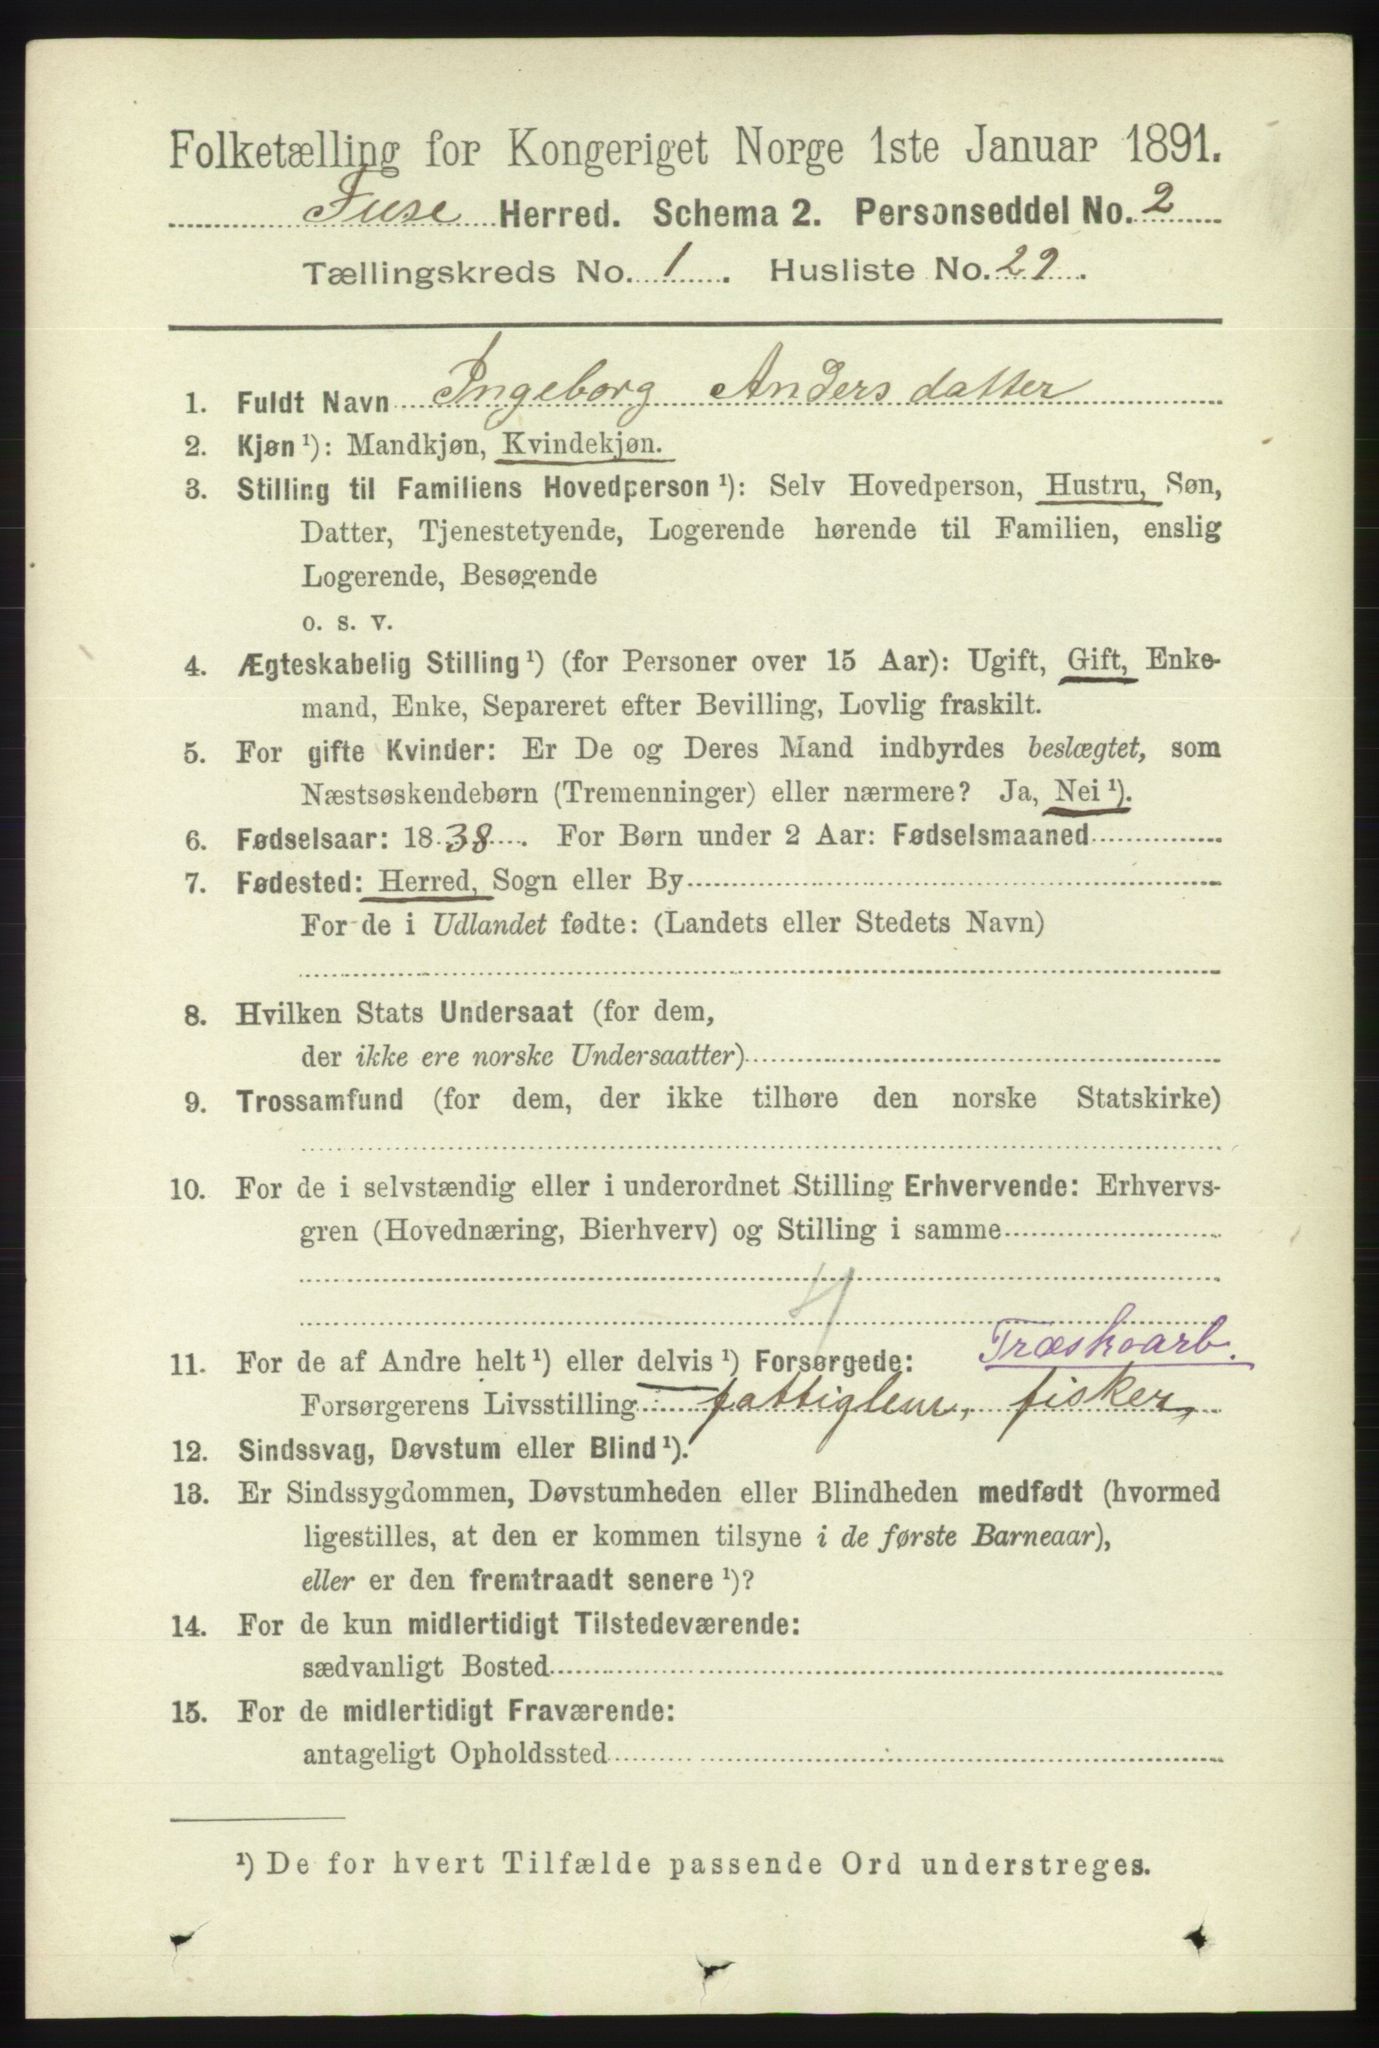 Folketælling for Kongeriget Norge 1ste Januar 1891.
Fuse Herred. Schema 2. Personseddel No. 2
Tællingskreds No. 1. Husliste No. 29.
1. Fuldt Navn Ingeborg Andersdatter
2. Kjøn ¹): Mandkjøn, Kvindekjøn.
3. Stilling til Familiens Hovedperson ¹): Selv Hovedperson, Hustru, Søn,
Datter, Tjenestetyende, Logerende hørende til Familien, enslig
Logerende, Besøgende
o. s. v.
4. Ægteskabelig Stilling ¹) (for Personer over 15 Aar): Ugift, Gift, Enke-
mand, Enke, Separeret efter Bevilling, Lovlig fraskilt.
5. For gifte Kvinder: Er De og Deres Mand indbyrdes beslægtet, som
Næstsøskendebørn (Tremenninger) eller nærmere? Ja, Nei ¹).
6. Fødselsaar: 1838. For Børn under 2 Aar: Fødselsmaaned
7. Fødested: Herred, Sogn eller By
For de i Udlandet fødte: (Landets eller Stedets Navn)
8. Hvilken Stats Undersaat (for dem,
der ikke ere norske Undersaatter)
9. Trossamfund (for dem, der ikke tilhøre den norske Statskirke)
10. For de i selvstændig eller i underordnet Stilling Erhvervende: Erhvervs-
gren (Hovednæring, Bierhverv) og Stilling i samme
Træskoarb.
11. For de af Andre helt ¹) eller delvis ¹) Forsørgede:
Forsørgerens Livsstilling fattiglem, fisker,
12. Sindssvag, Døvstum eller Blind ¹).
13. Er Sindssygdommen, Døvstumheden eller Blindheden medfødt (hvormed
ligestilles, at den er kommen tilsyne i de første Barneaar),
eller er den fremtraadt senere ¹)?
14. For de kun midlertidigt Tilstedeværende:
sædvanligt Bosted
15. For de midlertidigt Fraværende:
antageligt Opholdssted
¹) De for hvert Tilfælde passende Ord understreges.